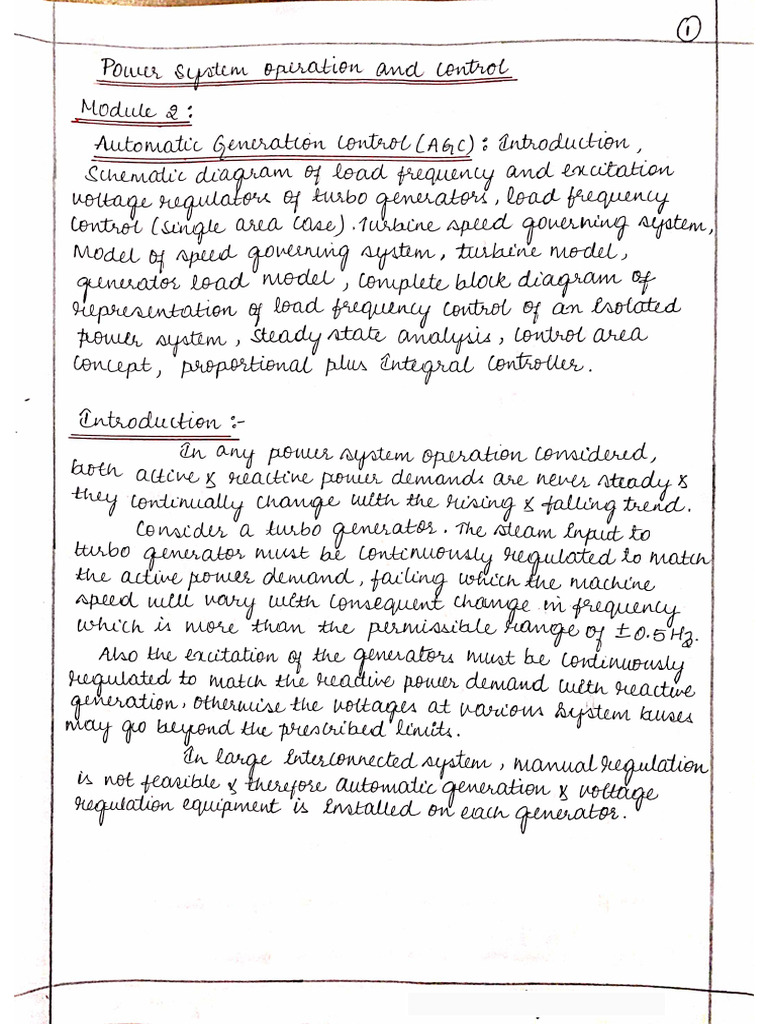 1
Power System Operation and Control
Module 2:
Automatic Generation Control (AGC): Introduction,
Schematic diagram of load frequency and excitation
voltage regulators of turbo generators, load frequency
Control (Single area Case). Turbine speed governing system,
Model of speed governing system, turbine model,
generator load model, Complete block diagram of
representation of load frequency Control of an Isolated
power system, Steady state analysis, Control area
Concept, proportional plus Integral Controller.
Introduction :-
In any power system operation Considered,
both active & reactive power demands are never steady &
they Continually Change with the rising & falling trend.
Consider a turbo generator. The steam Input to
turbo generator must be Continuously regulated to match
the active power demand, failing which the machine
speed will vary with Consequent Change in frequency
which is more than the permissible range of ±0.5Hz.
Also the excitation of the generators must be Continuously
regulated to match the reactive power demand with reactive
generation, otherwise the voltages at various System buses
may go beyond the prescribed limits.
In large Interconnected system, manual regulation
is not feasible & therefore automatic generation & voltage
regulation equipment is Installed on each generator.